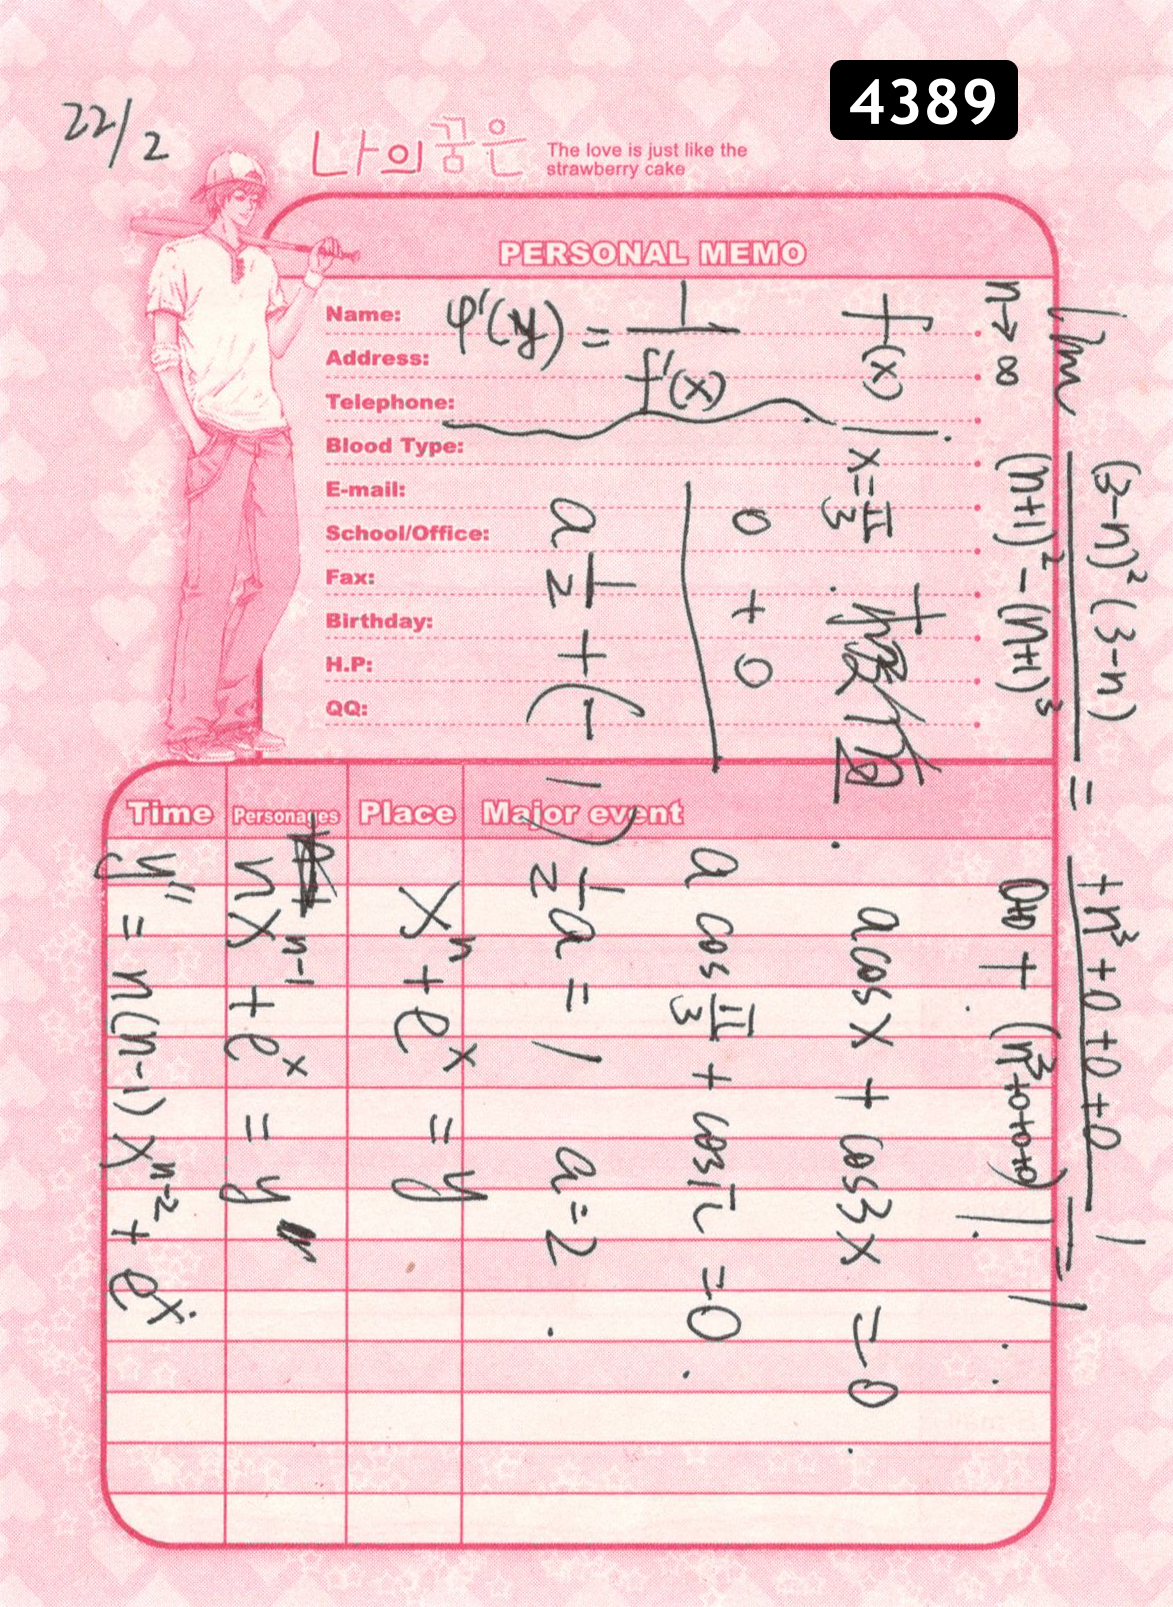 4389
22/2
나의 꿈은
The love is just like the
strawberry cake
PERSONAL MEMO
Name:
Address:
Telephone:
Blood Type:
E-mail:
School/Office:
Fax:
Birthday:
H.P:
QQ:
Time Personages Place Major event
φ'(y) = 1/f'(x)
lim n→∞ (3-n)²(3-n) / (n+1)² - (n+1)³ = +n³+0+0+0 / 0+0 + (n³+0+0+0) = 1
f(x) | x = π/3 . 极值 .
a cos x + cos 3x = 0
0 + 0
a cos π/3 + cos π = 0 .
a 1/2 + (-1)
1/2 a = 1 a = 2 .
xⁿ + eˣ = y
nxⁿ⁻¹ + eˣ = y
y'' = n(n-1)xⁿ⁻² + eˣ